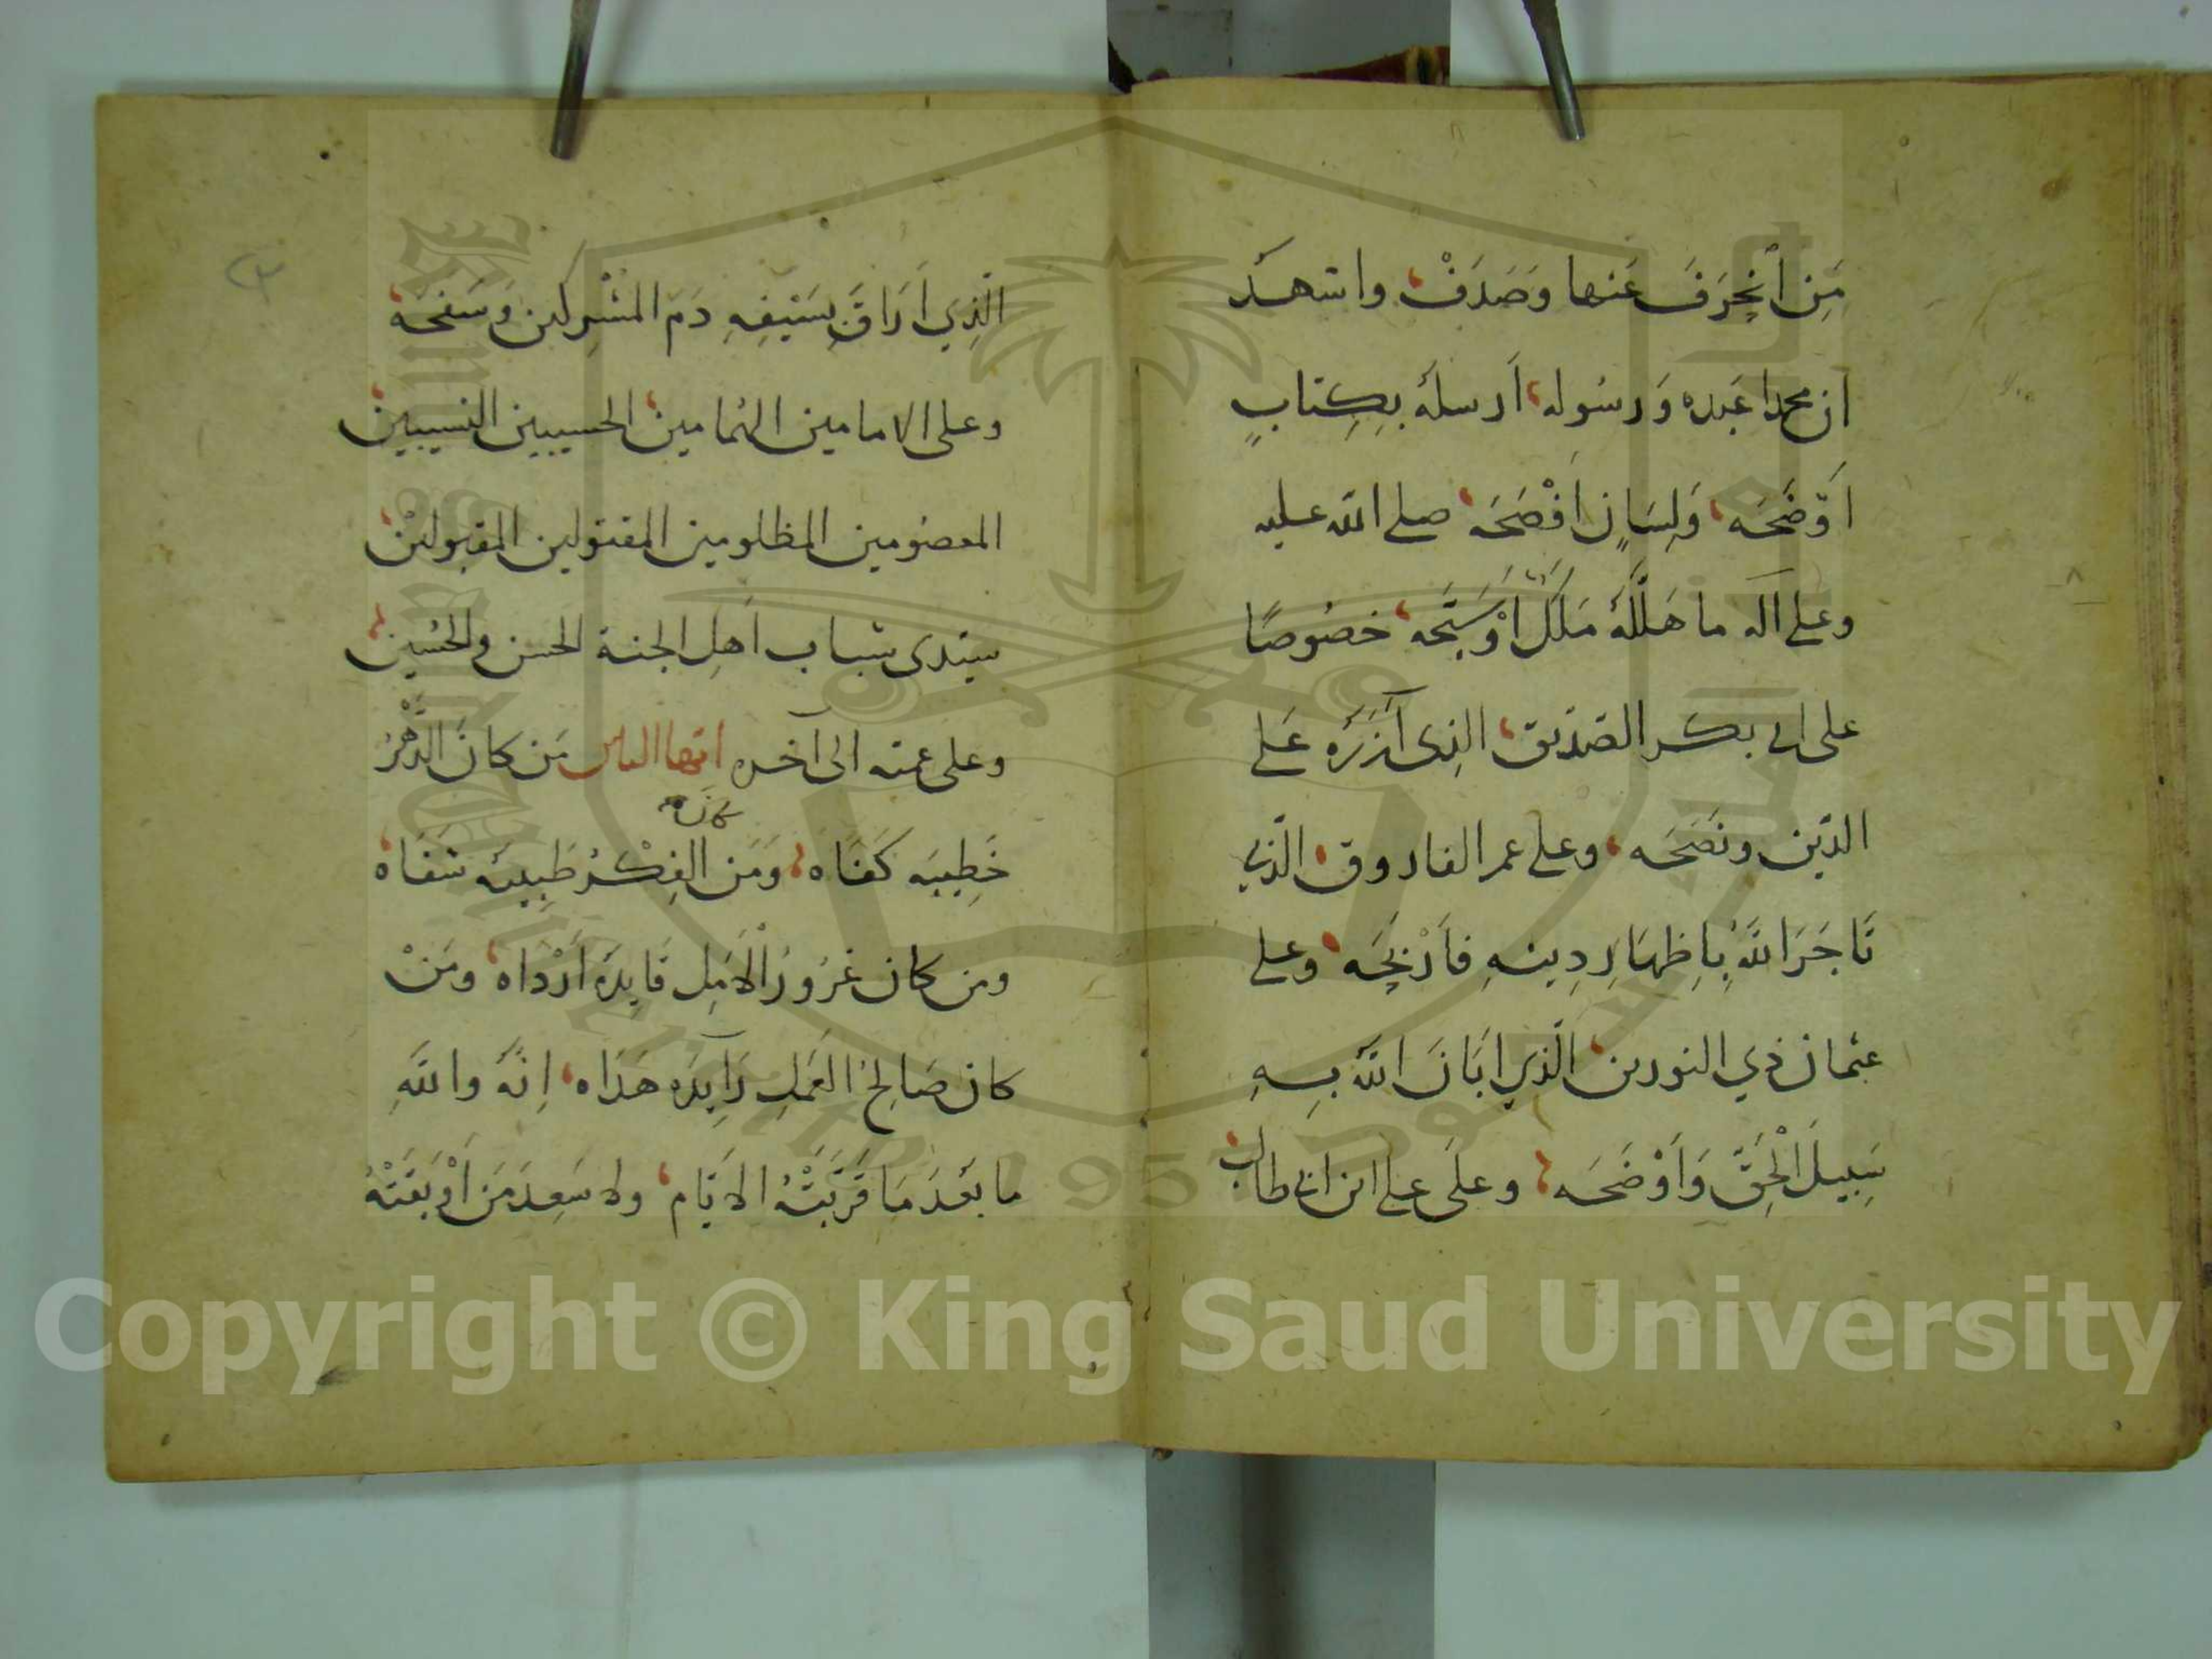 مَنِ انْحَرَفَ عَنها وَصَدَفْ، واشهد
ان محمدا عَبده وَرسُوله، اَرسلهُ بِكِتابٍ
اَوْضَحَه، وَلِسَانٍ اَفْصَحَه، صلى الله عليه
وعلى آله ما هَلَّلَهُ مَلَكٌ اَوْ سَبَّحَه، خصُوصًا
على ابي بكر الصّدّيق، الذِى آزَرَه عَلى
الدّين ونَصَحَه، وعلى عمر الفاروق، الّذي
تَاجَرَ اللهَ بِاِظهَارِ دِينهِ فاَرْبَحَه، وعلى
عثمان ذي النورين، الَّذِي اَبَانَ اللهُ بِهِ
سَبِيلَ الْحَقِّ وَاَوْضَحَه، وعلَى على ابن ابي طالب،
الّذِي اَرَاقَ بِسَيْفِهِ دَمَ المشْرِكين وَسَفَحَهُ،
وعلى الامامين الهُمامين، الحسيبين النسيبين،
المعصُومين المظلومين المقتولين المقبولين،
سيّدى شباب اَهلِ الجنة الحسن والحُسين،
وعلى عمّيه الى آخره ايّها الناس مَن كانَ الدَّهْرُ
كان
خَطِيبَه كَفَاه، وَمَن الفِكْرُ طَبِيبَه شَفَاه،
ومن كان غرُورُ الْاَمَلِ قَايِدَهُ اَرْداه، ومَنْ
كان صَالِحُ العَمَلِ رَايِدَه هَدَاه، اِنَّهُ واللهِ
ما بَعُدَ مَا قَرَّبَتْهُ الاَيَّام، ولا سَعِدَ مَن اَوْبَقَتْهُ
Copyright © King Saud University